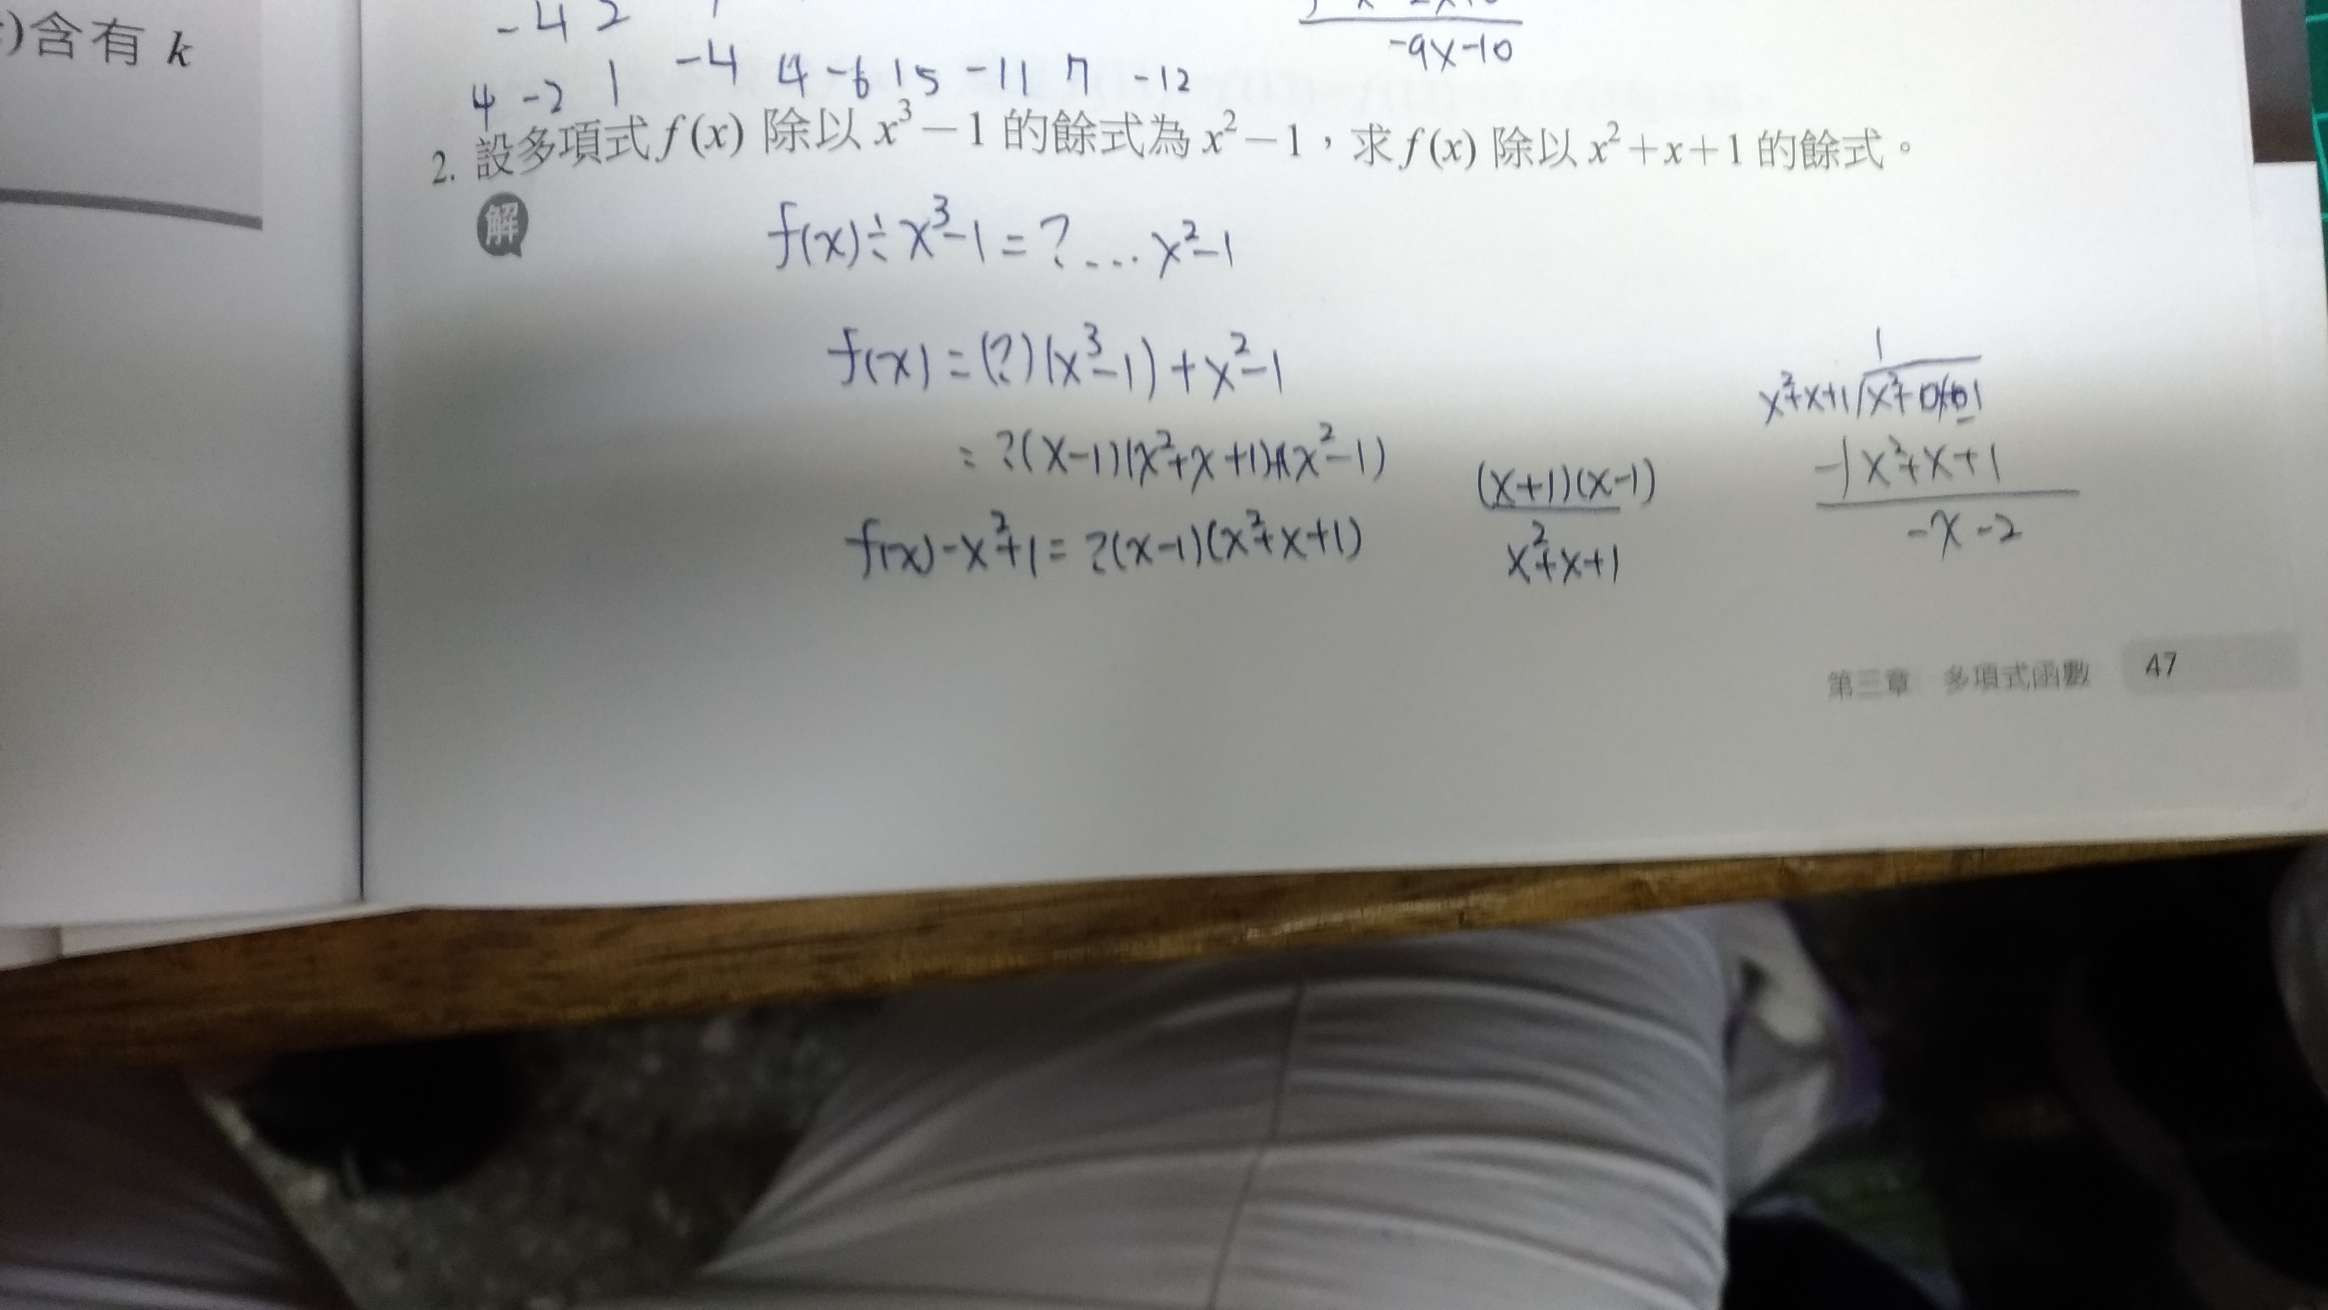 )含有 k
-4 2
4 -2 1 -4 4 -6 15 -11 7 -12
-9x-10
2. 設多項式 f(x) 除以 x³－1 的餘式為 x²－1，求 f(x) 除以 x²＋x＋1 的餘式。
解
f(x)÷x³-1=?...x²-1
f(x)=(?)(x³-1)+x²-1
=?(x-1)(x²+x+1)+(x²-1)
f(x)-x²+1=?(x-1)(x²+x+1)
(x+1)(x-1)
x²+x+1
1
x²+x+1
-)x²+x+1
-x-2
第三章 多項式函數 47